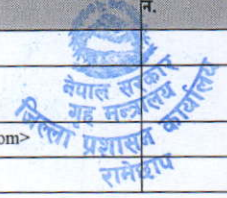 न.
नेपाल सरकार
गृह मन्त्रालय
जिल्ला प्रशासन कार्यालय
रामेछाप
om>